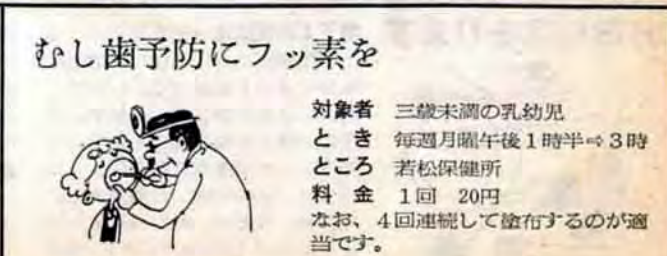 むし歯予防にフッ素を
対象者 三歳未満の乳幼児
と き 毎週月曜午後1時半⇨3時
ところ 若松保健所
料 金 1回 20円
なお、4回連続して塗布するのが適
当です。